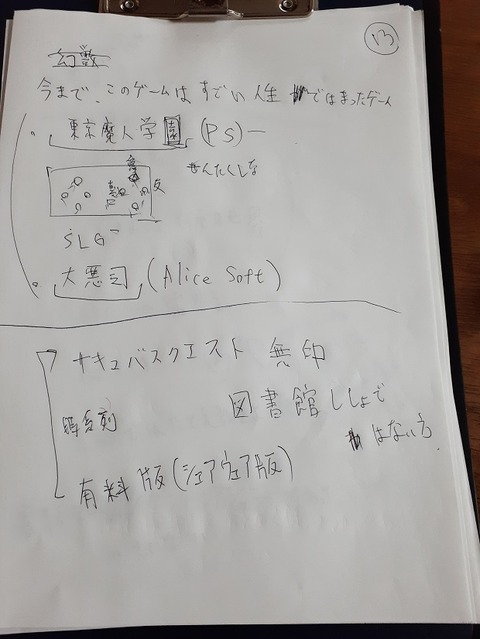 13
幻獣
今まで、このゲームは すごい 人生 ではまったゲーム
東京魔人学園 (PS)ー
せんたくしな
SLG
大悪司 (Alice Soft)
サキュバスクエスト 無印
図書館ししょで
はない方.
時刻
有料版(シェアウェア版)